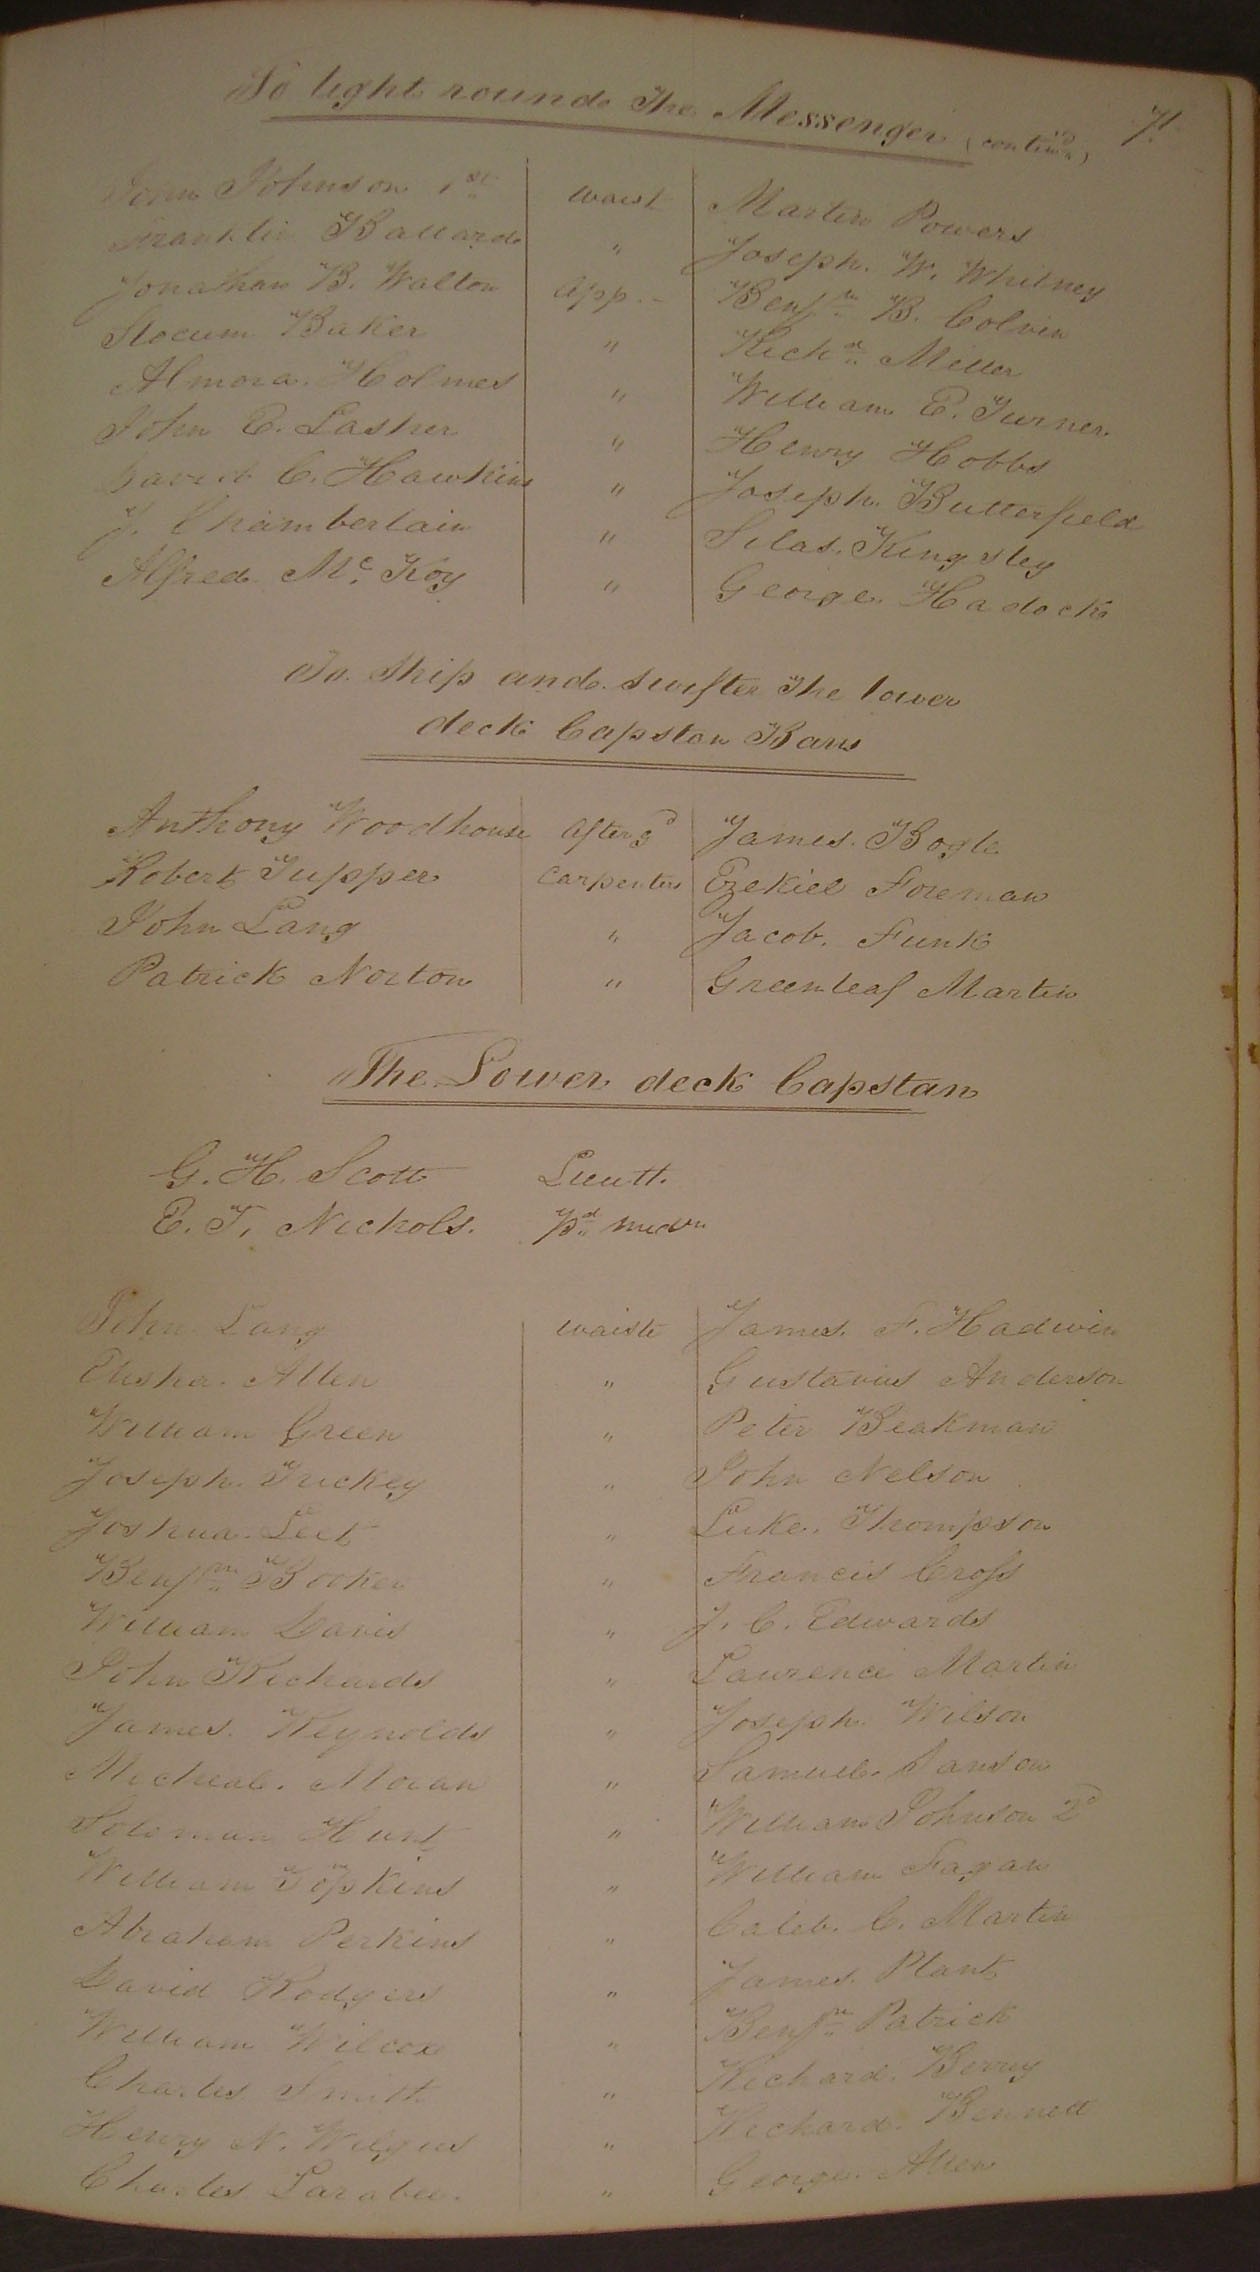 To light round the Messenger (contind) 71.
John Johnson 1st waist Martin Powers
Franklin Ballard " Joseph. W. Whitney
Jonathan B. Walton App. - Benjn B. Colvin
Slocum Baker " Richd Miller
Almora. Holmes " William E. Turner.
John E. Lasher " Henry Hobbs
David C. Hawkins " Joseph Butterfield
J. Chamberlain " Silas. Kingsley
Alfred Mc Koy " George Hadock
To Ship and swifter the lower
deck Capstan Bars
Anthony Woodhouse After gd James. Bogle
Robert Tupper Carpenters Ezekiel Foreman
John Lang " Jacob. Funk
Patrick Norton " Greenleaf Martin
The Lower deck Capstan
G. H. Scott Lieutt.
E. T. Nichols. Pd midn
John Lang waiste James. F. Hadwin
Elisha. Allen " Gustavus Anderson
William Green " Peter Beakman
Joseph. Trickey " John Nelson
Joshua. Leet " Luke. Thompson
Benjn Booker " Francis Cross
William Davis " J. C. Edwards
John Richards " Lawrence Martin
James. Reynolds " Joseph Wilson
Micheal. Moran " Samuel.
Soloman Hunt " William Johnson 2d
William Topkins " William Fagan
Abraham Perkins " Caleb. C. Martin
David Rodgers " James. Plant
William Wilcox " Benjn Patrick
Charles Smith " Richard. Berry
Henry N. Wilgus " Richard. Bennett
Charles Larabee. " George. Allen